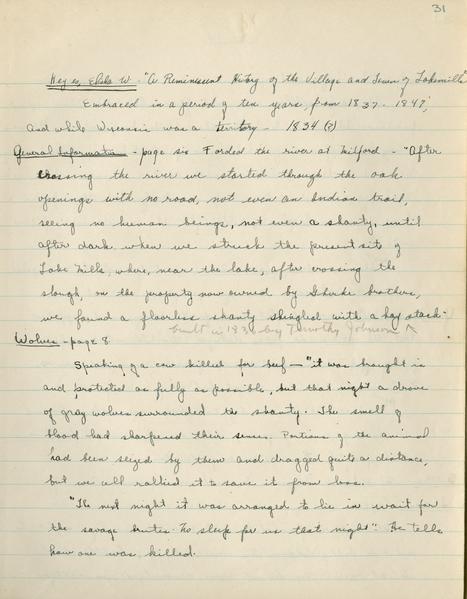 31
Keyes, Elisha W. "A Reminiscent History of the Village and Town of Lake Mills"
Embraced in a period of ten years, from 1837-1847,
and while Wisconsin was a territory - 1834 (?)
General Information - page six Forded the river at Milford - "After
crossing the river we started through the oak
openings with no road, not even an Indian trail,
seeing no human beings, not even a shanty, until
after dark when we struck the present site of
Lake Mills, where, near the lake, after crossing the
slough, on the property now owned by brothers,
we found a floorless shanty shingled with a hay stack-
built in 1836 by Timothy Johnson ^
Wolves - page 8
Speaking of a cow killed for beef - "it was brought in
and protected as fully as possible, but that night a drove
of gray wolves surrounded the shanty. The smell of
blood had sharpened their senses. Portions of the animal
had been seized by them and dragged quite a distance,
but we all rallied it to save it from loss.
"The next night it was arranged to lie in wait for
the savage brutes. No sleep for us that night" He tells
how one was killed.